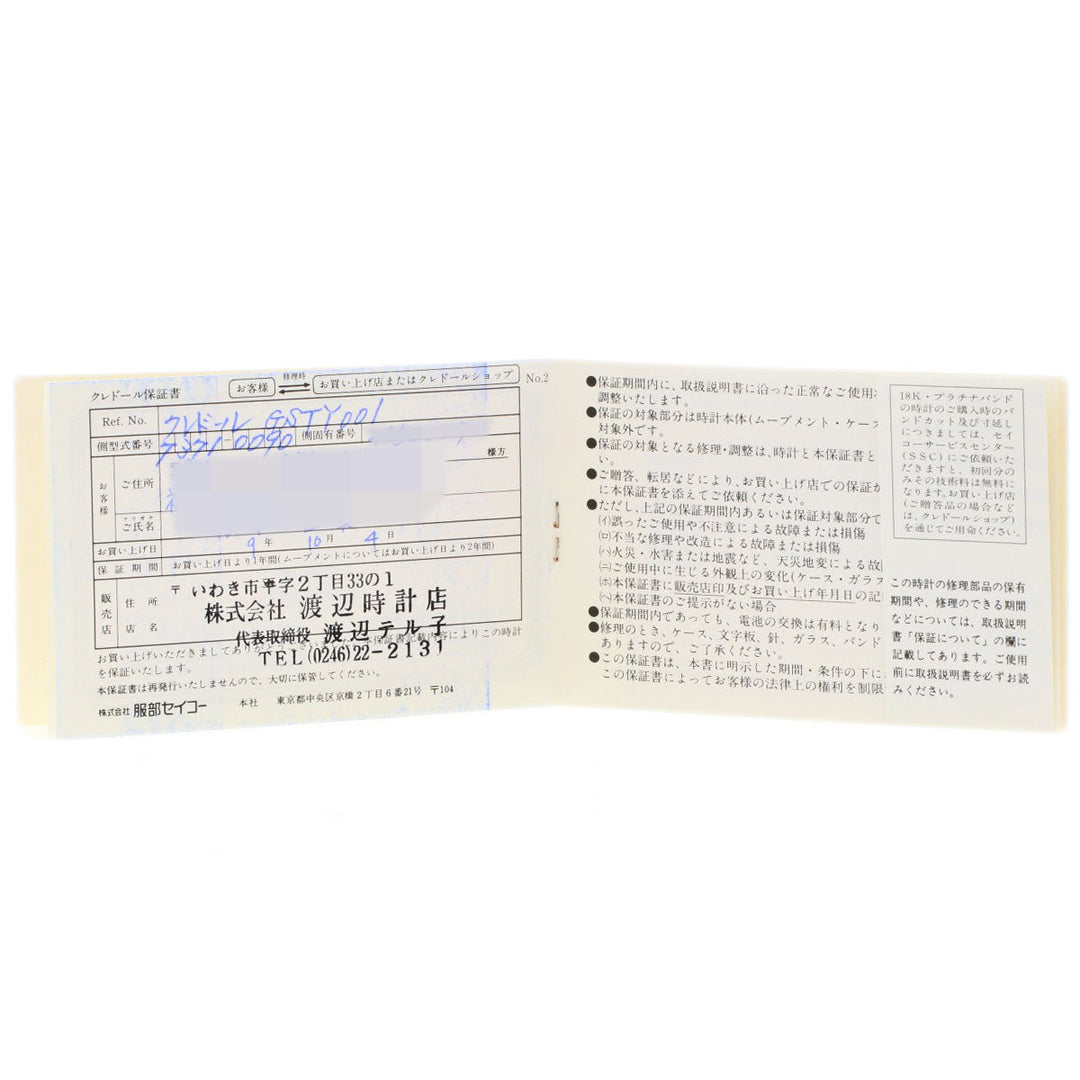 クレドール保証書
お客様
修理時
お買い上げ店またはクレドールショップ
No.2
Ref. No. クレドール GSTY001
側型式番号 7371-0090 側固有番号
お客様
ご住所
様方
フリガナ
ご氏名
お買い上げ日 9 年 10 月 4 日
保証期間 お買い上げ日より1年間(ムーブメントについてはお買い上げ日より2年間)
販売店
住所
店名
〒 いわき市平字2丁目33の1
株式会社 渡辺時計店
代表取締役 渡辺テル子
TEL(0246)22-2131
お買い上げいただきましてありがとう 本保証書記載内容によりこの時計
を保証いたします。
本保証書は再発行いたしませんので、大切に保管してください。
株式会社 服部セイコー 本社 東京都中央区京橋2丁目6番21号 〒104
●保証期間内に、取扱説明書に沿った正常なご使用
調整いたします。
●保証の対象部分は時計本体(ムーブメント・ケース
対象外です。
●保証の対象となる修理・調整は、時計と本保証書と
い。
●ご贈答、転居などにより、お買い上げ店での保証が
に本保証書を添えてご依頼ください。
●ただし、上記の保証期間内あるいは保証対象部分で
(イ)誤ったご使用や不注意による故障または損傷
(ロ)不当な修理や改造による故障または損傷
(ハ)火災・水害または地震など、天災地変による故
(ニ)ご使用中に生じる外観上の変化(ケース・ガラス
(ホ)本保証書に販売店印及びお買い上げ年月日の記
(ヘ)本保証書のご提示がない場合
●保証期間内であっても、電池の交換は有料となり
●修理のとき、ケース、文字板、針、ガラス、バンド
ありますので、ご了承ください。
●この保証書は、本書に明示した期間・条件の下に
この保証書によってお客様の法律上の権利を制限
18K・プラチナバンド
の時計のご購入時のバ
ンドカット及び寸延し
につきましては、セイ
コーサービスセンター
(SSC)にご依頼いた
だきますと、初回分の
みその技術料は無料に
なります。お買い上げ店
(ご贈答品の場合など
は、クレドールショップ)
を通じてご用命ください。
この時計の修理部品の保有
期間や、修理のできる期間
などについては、取扱説明
書「保証について」の欄に
記載してあります。ご使用
前に取扱説明書を必ずお読
みください。